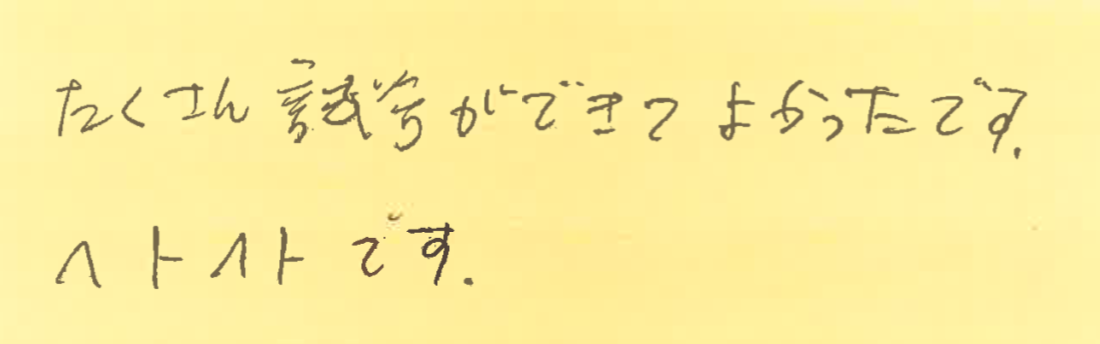 たくさん試合ができてよかったです.
ヘトヘトです.